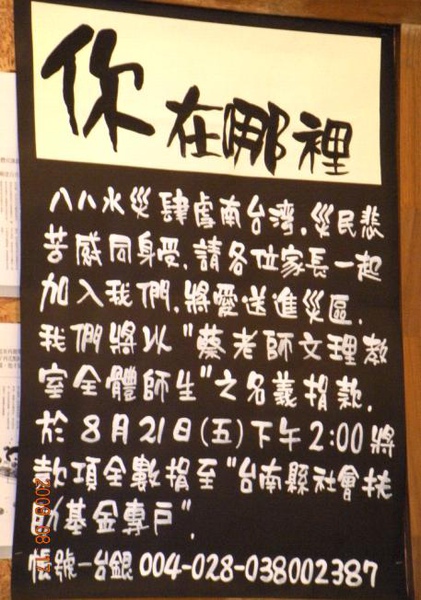 你在哪裡
八八水災肆虐南台灣,災民悲
苦感同身受,請各位家長一起
加入我們,將愛送進災區.
我們將以"蔡老師文理教
室全體師生"之名義捐款,
於 8月21日(五)下午2:00 將
款項全數捐至"台南縣社會扶
助基金專戶".
帳號一台銀 004-028-038002387